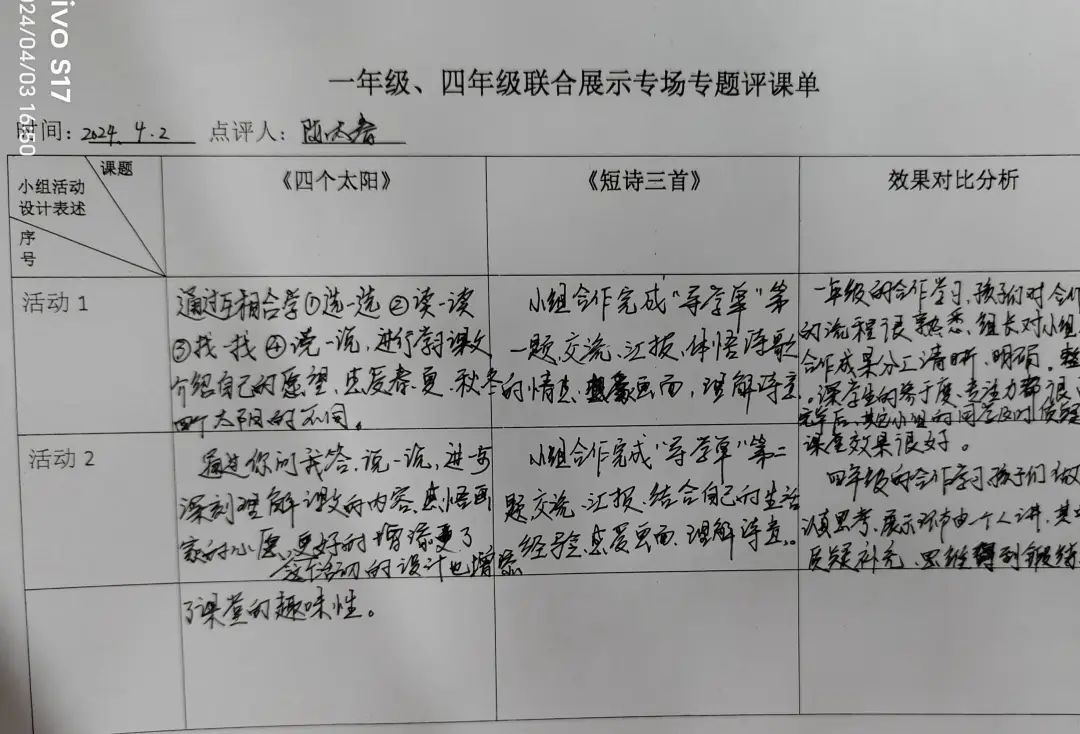 vivo S17
2024/04/03 16:50
一年级、四年级联合展示专场专题评课单
时间：2024.4.2 点评人：
课题
小组活动
设计表述
序
号
《四个太阳》
《短诗三首》
效果对比分析
活动1
通过互相合学①选一选②读一读
③找一找④说一说，进行学习课文
介绍自己的愿望，感受春、夏、秋、冬
四个太阳的不同。
小组合作完成“导学单”第
一题，交流、汇报、体悟诗歌
的情意，画面，理解诗意。
一年级的合作学习，孩子们对合作
的流程很熟悉，组长对小组
合作成果分工清晰、明确。整
课学生的参与度、专注力都很
完毕后，其它小组的同学及时
课堂效果很好。
活动2
通过你问我答、说一说，进步
深刻理解课文的内容，感悟画
家的心愿，更好的增添更了
这个活动的设计也增添
了课堂的趣味性。
小组合作完成“导学单”第二
题交流、汇报、结合自己的生活
经验，感受画面、理解诗意。
四年级的合作学习孩子们
认真思考，展示环节由一个人讲，其
质疑补充，思维得到锻练